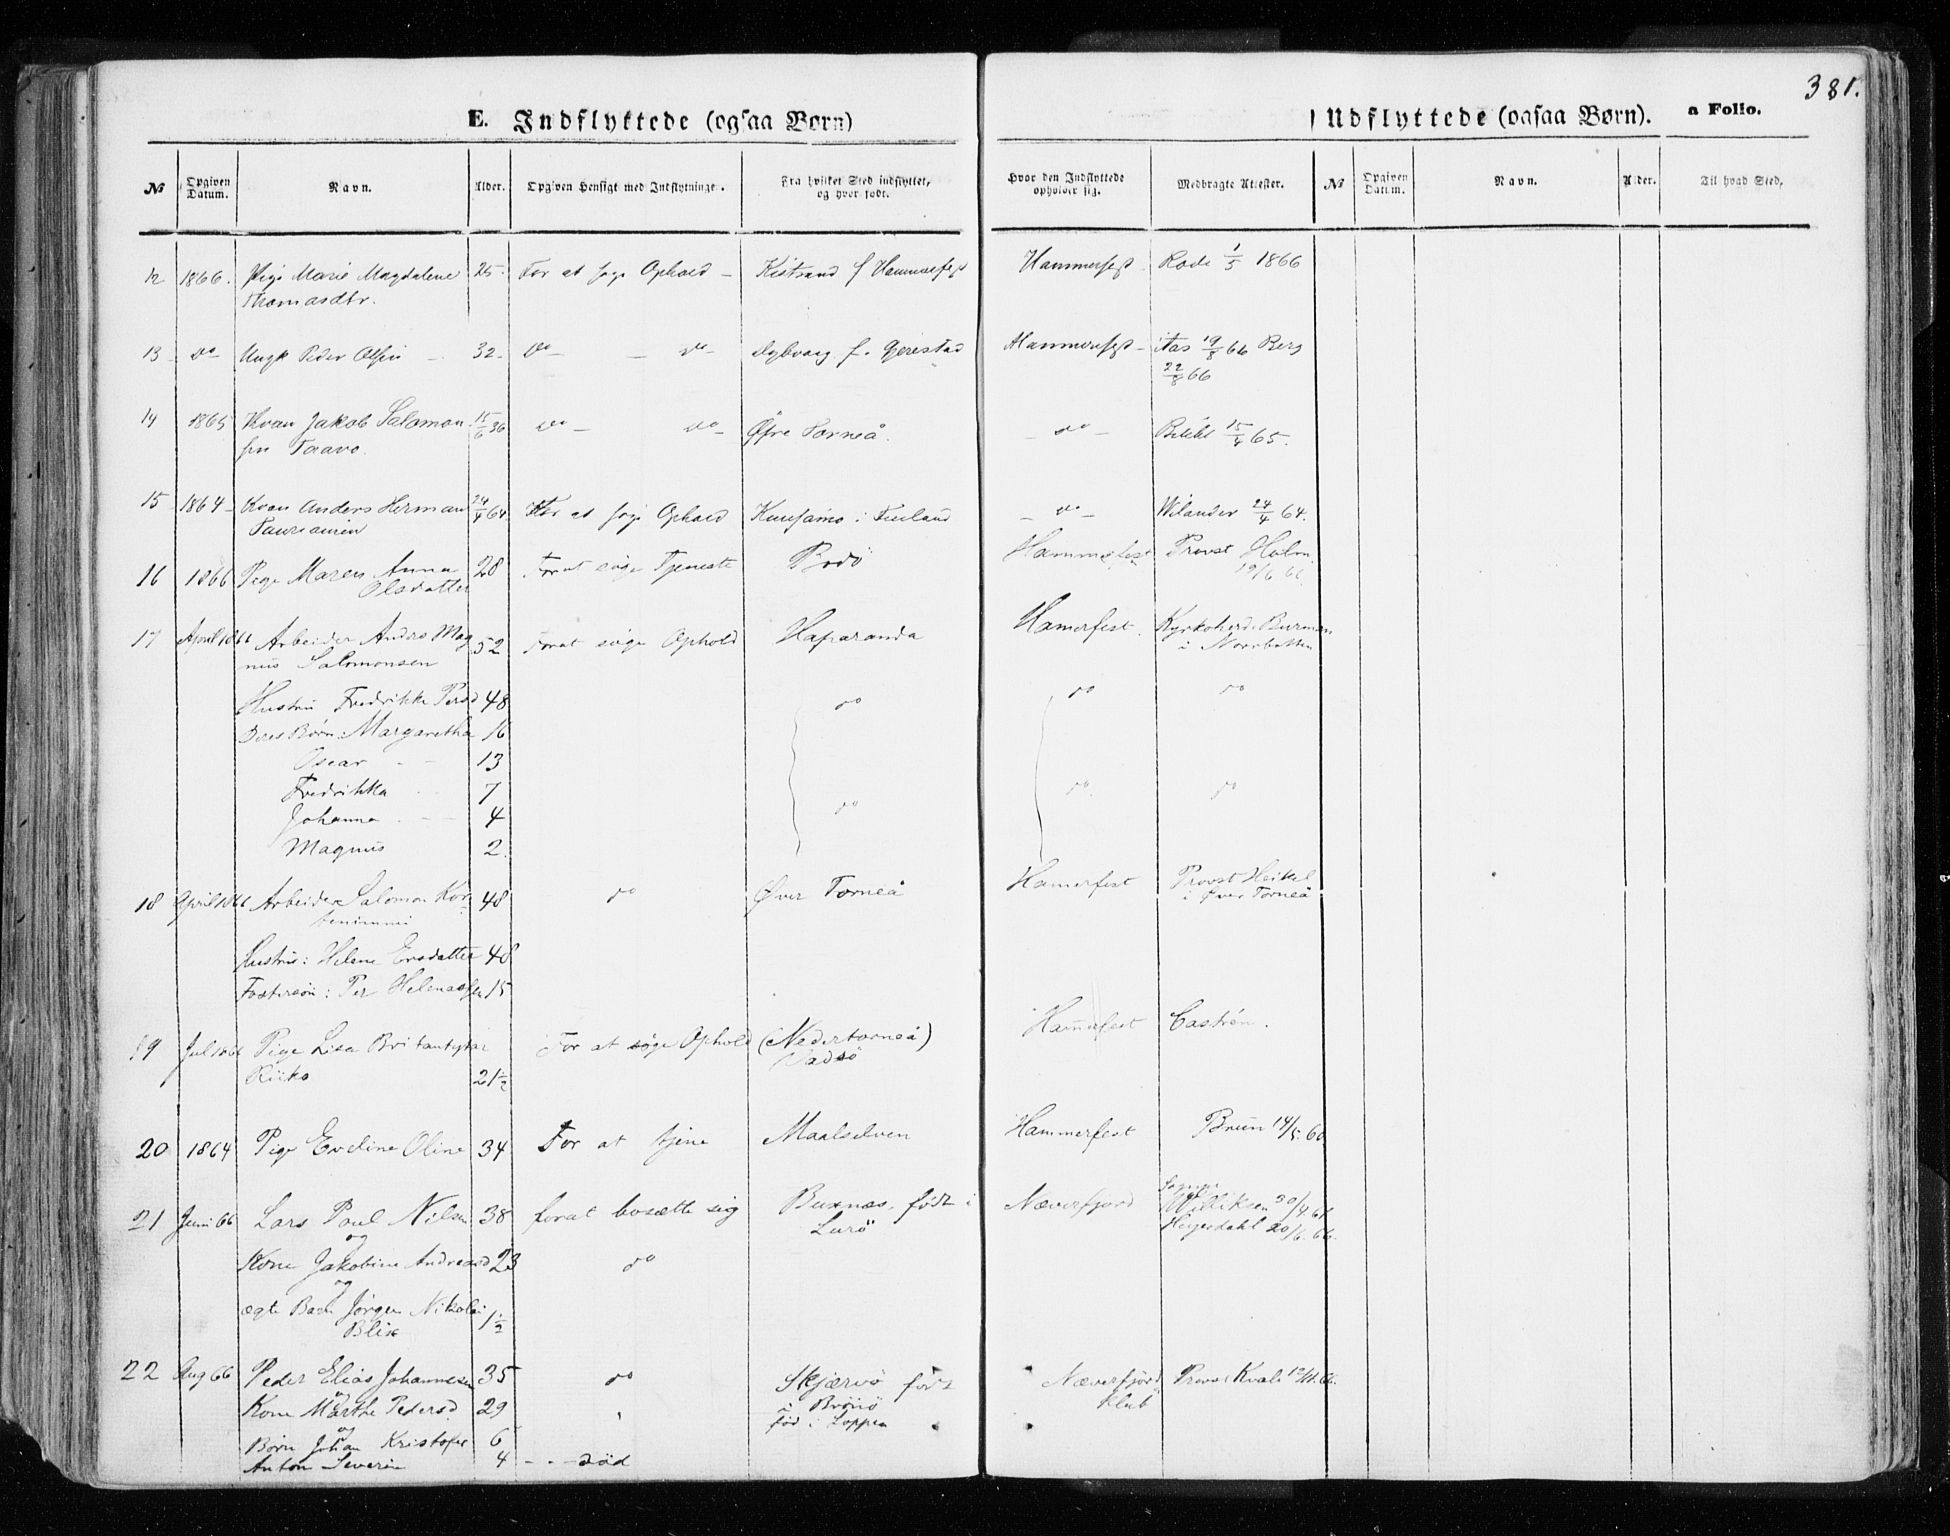 381.
E. Indflyttede (ogsaa Børn)
Udflyttede (ogsaa Børn). a Folio.
№ Opgiven Datum. Navn. Alder. Opgiven Hensigt med Indflytningen. Fra hvilket Sted indflyttet, og hvor født. Hvor den Indflyttede opholder sig. Medbragte Attester. № Opgiven Datum. Navn. Alder. Til hvad Sted.
12 1866. Pige Marie Magdalene 25. For at søge Ophold - Kistrand f Hammerfest Hammerfest Rode 1/5 1866
Thomasdtr.
13 do Ungk Peder Olsen 32 do - do Dybvaag f. Gjerestad Hammerfest 19/8 66 Berg
22/8 66
14 1865 Kvæn Jakob Salomon 15/6 36 do - do Øfre Torneå. do 15/4 65.
sen Taavo.
15 1864 Kvæn Anders Herman 24/4 64 For at søge Ophold Kuusamo i Finland do Wilander 24/4 64.
16 1866 Pige Maren Anna 28 For at søge Tjeneste Bodö Hammerfest Provst Holm
Olsdatter 19/6 66.
17 April 1866 Arbeider Anders Mag 52 For at søge Ophold Haparanda Hamerfest. Kyrkoherde Burman
nus Salomonsen i Norrbotten
Hustru Fredrikke Persd 48 do do do
Deres Børn: Margaretha 16
Oscar - - 13
Fredrikka - - 7 do do do
Johanna - - 4
Magnus 2.
18 April 1866 Arbeider Salomon Kor 48 do Øver Torneå Hamerfest Provst Heikel
tenimmi i Øver Torneå
Hustru: Helene Ersdatter 48
Fostersön: Per Helenasen 15
19 Jul 1866 Pige Lisa Brita For at søge Ophold (Nedertorneå) Hamerfest Castrén.
Riiko 21½ Vadsö
20 1864 Pige Eveline Oline 34 For at tjene Maalselven Hammerfest Brun 14/5. 60
21 Juni 66 Lars Poul Nilsen 38 forat bosætte sig Buxnæs, født i Næverfjord Williksen 30/4. 66
og Lurö Heyerdahl 20/6. 66.
Kone Jakobine Andreasd 23 do
og
ægte Barn Jørgen Nikolai 1½
Blix
22 Aug 66 Peder Elias Johannesen 35 do Skjærvö født Næverfjord Provst Kvale
og i Brönö Klub
Kone Marthe Pedersd. 29 fød i Loppen
og
Børn Johan Kristofer 6
Anton Severin 4 - - - död